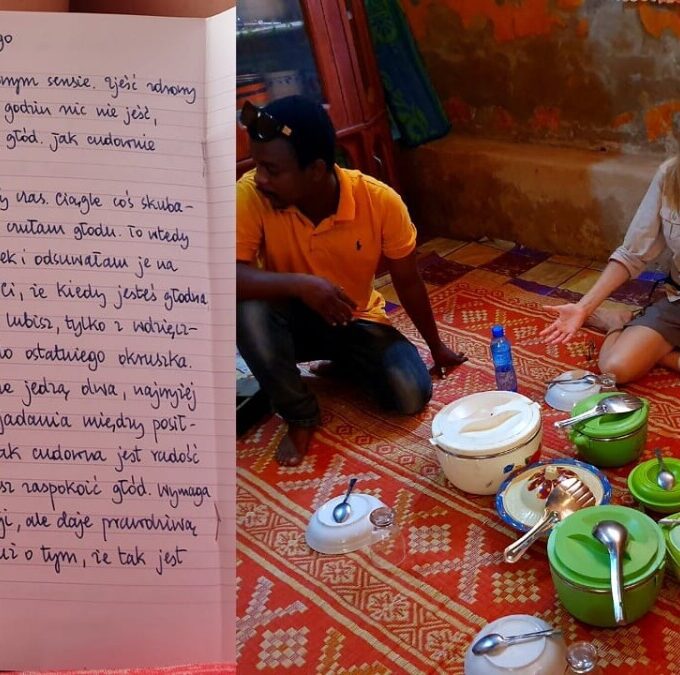 go
nym sensie. Zjeść zdrowy
godzin nic nie jeść,
głód. Jak cudownie
czas. Ciągle coś skuba-
czułam głodu. To wtedy
ek i odsuwałam je na
ci, że kiedy jesteś głodna
lubisz, tylko z wdzięcz-
o ostatniego okruszka.
ne jedzą dwa, najwyżej
jadania między posił-
ak cudowna jest radość
sz zaspokoić głód. Wymaga
ji, ale daje prawdziwą
uż o tym, że tak jest